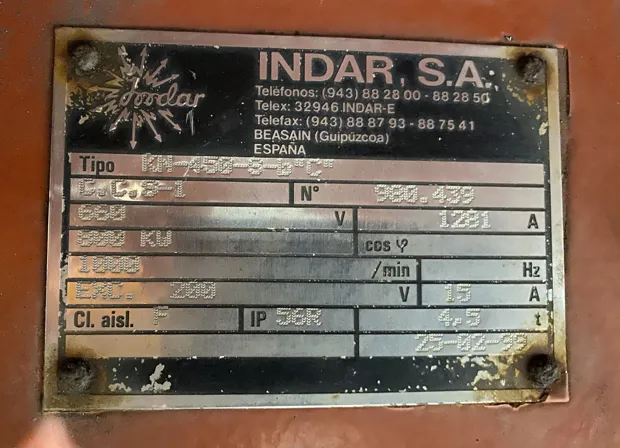 indar
INDAR, S.A.
Teléfonos: (943) 88 28 00 - 88 28 50
Telex: 32946 INDAR-E
Telefax: (943) 88 87 93 - 88 75 41
BEASAIN (Guipúzcoa)
ESPAÑA
Tipo KN-450-S-b"C"
C.C.S-1 N° 980.439
660 V 1281 A
800 KW cos φ
1000 /min Hz
EXC. 200 V 15 A
Cl. aisl. F IP 56R 4,5 t